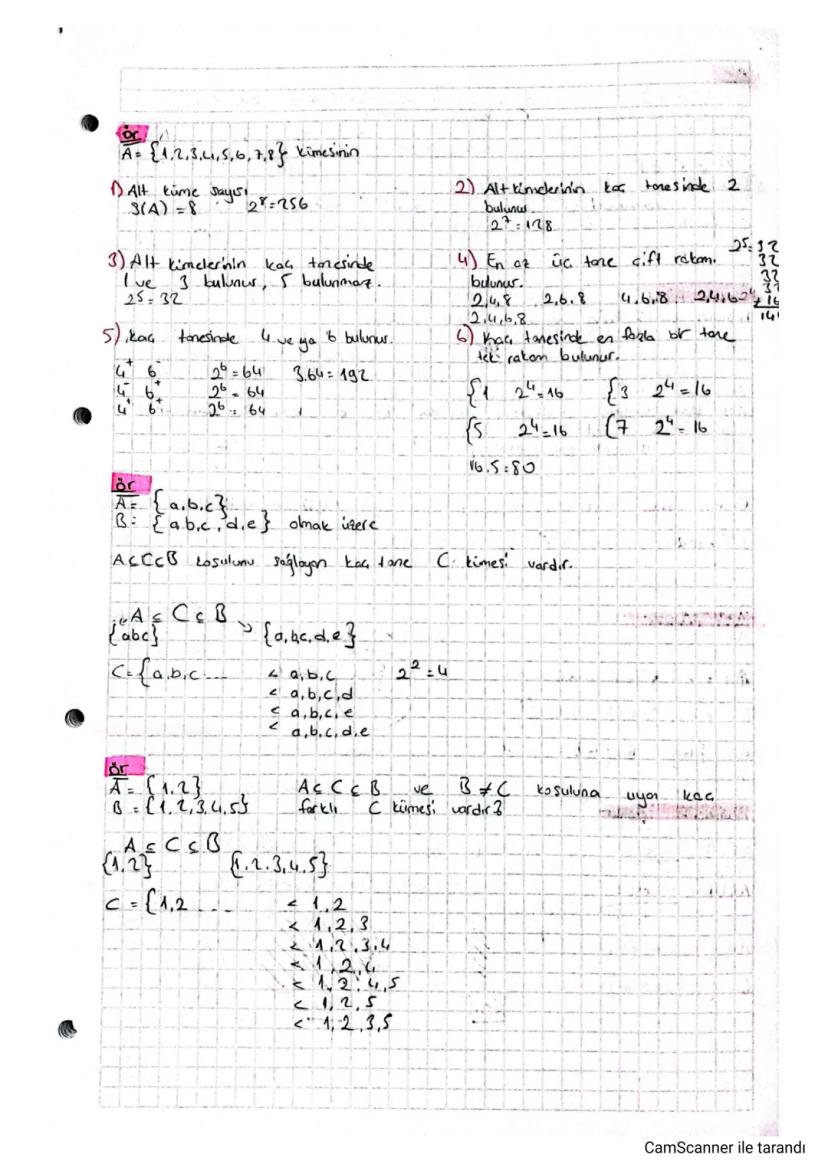 ör
A = {1,2,3,4,5,6,7,8} kümesinin
1) Alt küme sayısı
3(A) = 8 2⁸=256
2) Alt kümelerinin kaç tanesinde 2
bulunur
2⁷=128
3) Alt kümelerinin kaç tanesinde
1 ve 3 bulunur, 5 bulunmaz.
2⁵=32
4) En az üç tane çift rakam
bulunur.
2,4,8 2,6,8 4,6,8 2,4,6
2,4,6,8
2⁵=32
32
32
32
+ 16
144
5) kaç tanesinde 4 ve ya 6 bulunur.
4⁺ 6⁻ 2⁶=64 3.64=192
4⁻ 6⁺ 2⁶=64
4⁺ 6⁺ 2⁶=64
6) Kaç tanesinde en fazla bir tane
tek rakam bulunur.
{1 2⁴=16 {3 2⁴=16
{5 2⁴=16 {7 2⁴=16
16.5=80
ör
A = {a,b,c}
B = {a,b,c,d,e} olmak üzere
A⊆C⊆B koşulunu sağlayan kaç tane C kümesi vardır.
A ⊆ C ⊆ B
{abc} {a,b,c,d,e}
C={a,b,c... < a,b,c 2²=4
< a,b,c,d
< a,b,c,e
< a,b,c,d,e
ör
A = {1,2} A⊆C⊆B ve B≠C koşuluna uyan kaç
B = {1,2,3,4,5} farklı C kümesi vardır?
A ⊆ C ⊆ B
{1,2} {1,2,3,4,5}
C = {1,2 ... < 1,2
< 1,2,3
< 1,2,3,4
< 1,2,4
< 1,2,4,5
< 1,2,5
< 1,2,3,5
CamScanner ile tarandı